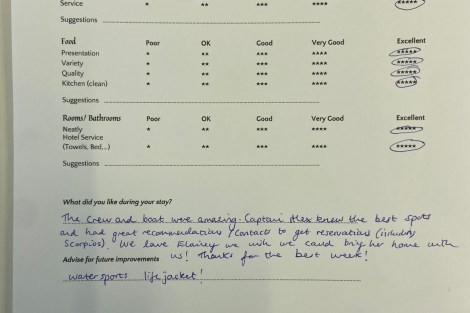 Service * ** *** **** *****
Suggestions
Food Poor OK Good Very Good Excellent
Presentation * ** *** **** *****
Variety * ** *** **** *****
Quality * ** *** **** *****
Kitchen (clean) * ** *** **** *****
Suggestions
Rooms/ Bathrooms Poor OK Good Very Good Excellent
Neatly * ** *** **** *****
Hotel Service
(Towels, Bed,...) * ** *** **** *****
Suggestions
What did you like during your stay?
The crew and boat were amazing. Captain Alex knew the best spots
and had great recommendations / contacts to get reservations (including
Scorpios). We love Elainey we wish we could bring her home with
us! Thanks for the best week!
Advise for future improvements
watersports life jacket!